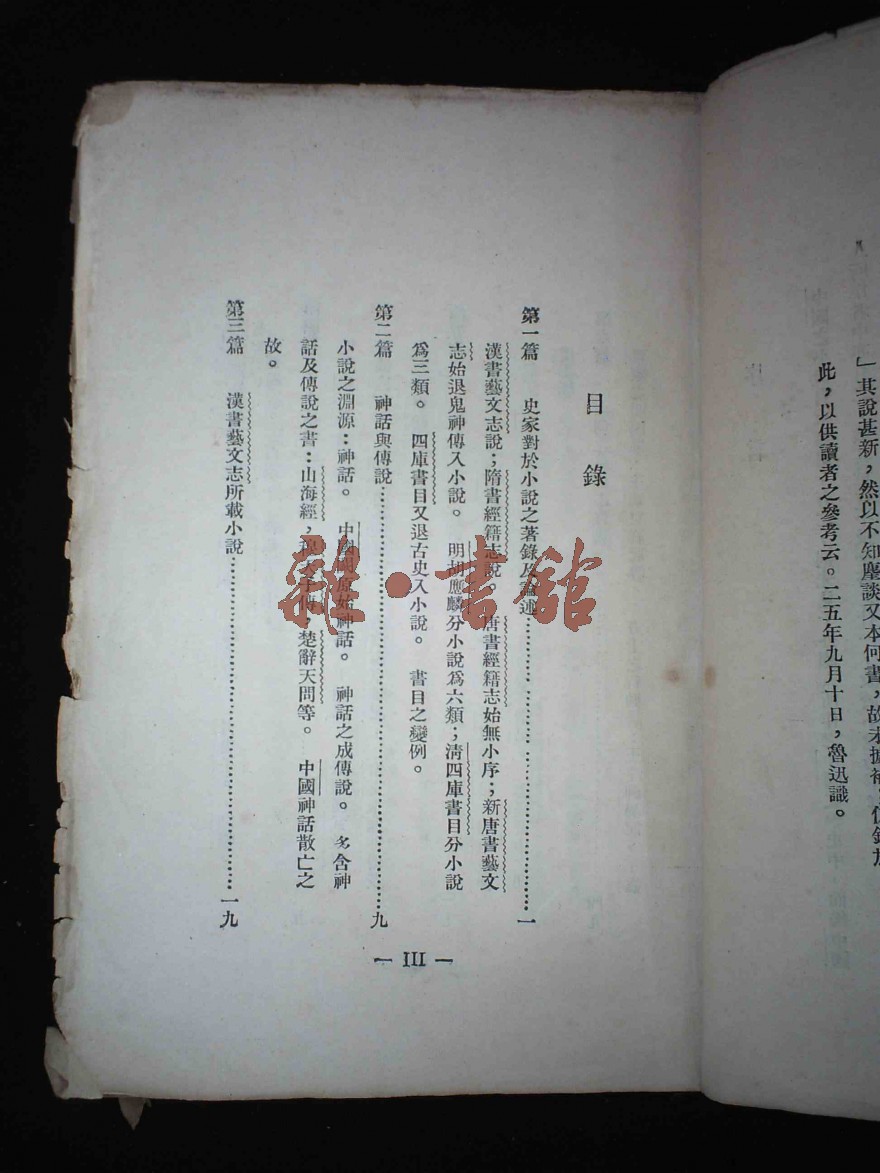 」其說甚新，然以不知麈談又本何書，故未據補；錄於
此，以供讀者之參考云。二五年九月十日，魯迅識。
目錄
第一篇　史家對於小說之著錄及論述……………………一
漢書藝文志說；隋書經籍志說。　唐書經籍志始無小序；新唐書藝文
志始退鬼神傳入小說。　明胡應麟分小說爲六類；清四庫書目分小說
爲三類。　四庫書目又退古史入小說。　書目之變例。
第二篇　神話與傳說……………………九
小說之淵源：神話。　中國原始神話。　神話之成傳說。　多含神
話及傳說之書：山海經，穆天子傳，楚辭天問等。　中國神話散亡之
故。
第三篇　漢書藝文志所載小說……………………一九
— III —
雜·書館